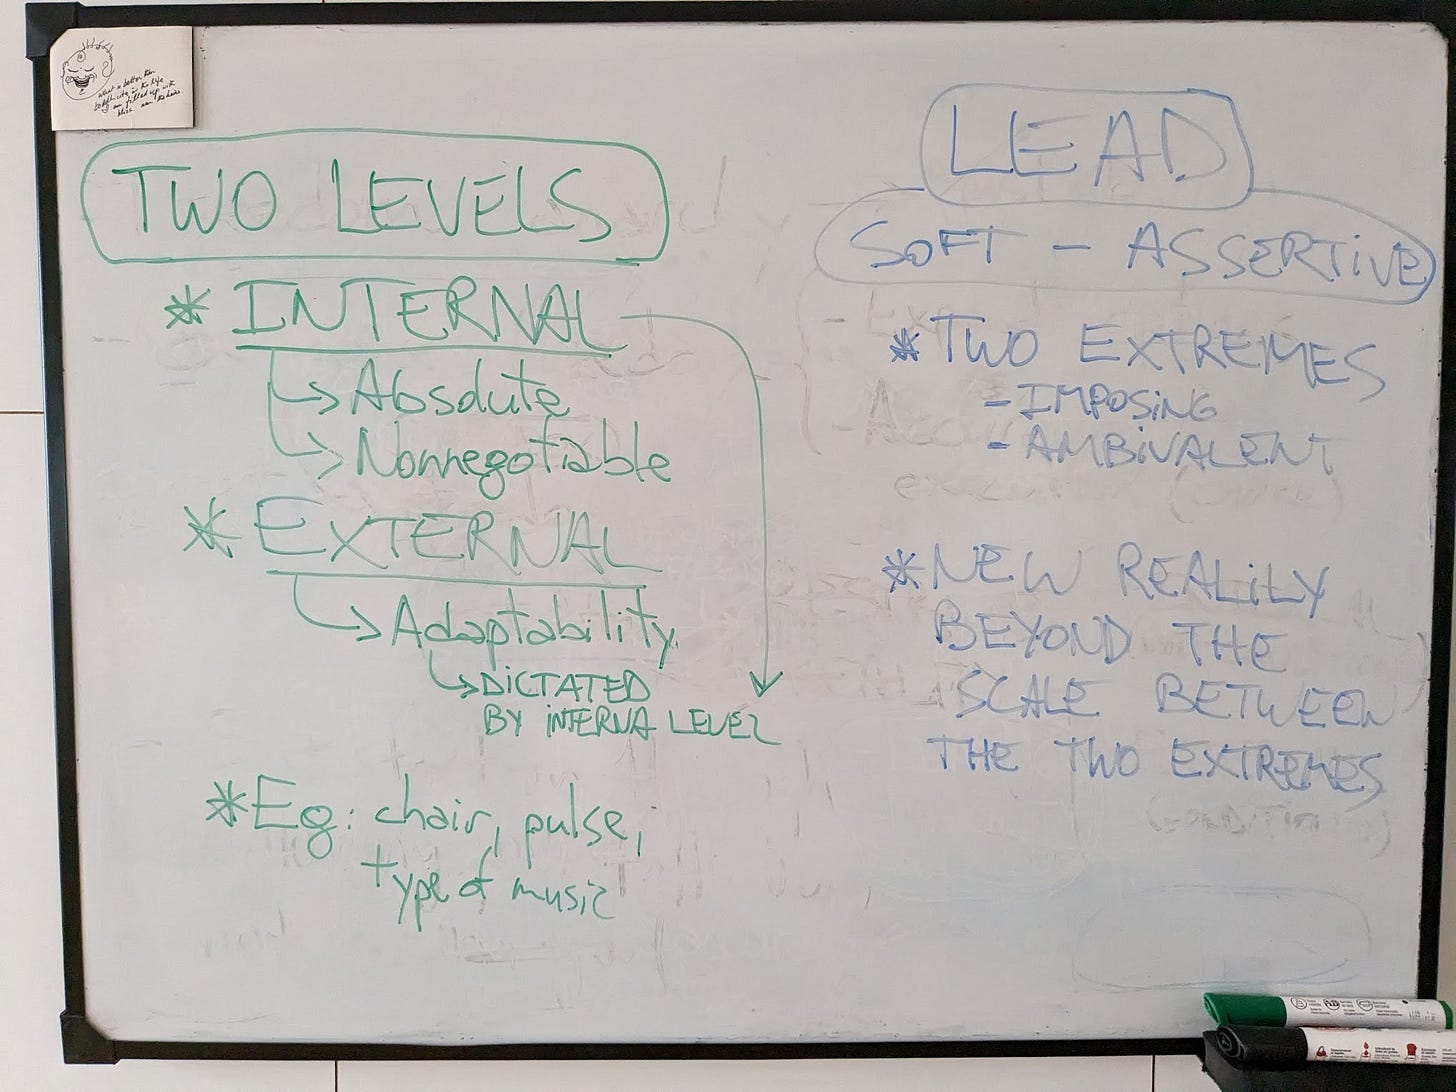 TWO LEVELS
* INTERNAL
→ Absolute
→ Nonnegotiable
* EXTERNAL
→ Adaptability.
→ DICTATED
BY INTERNA LEVEL
* Eg: chair, pulse,
type of music
LEAD
SOFT - ASSERTIVE
* TWO EXTREMES
- IMPOSING
- AMBIVALENT
* NEW REALITY
BEYOND THE
SCALE BETWEEN
THE TWO EXTREMES